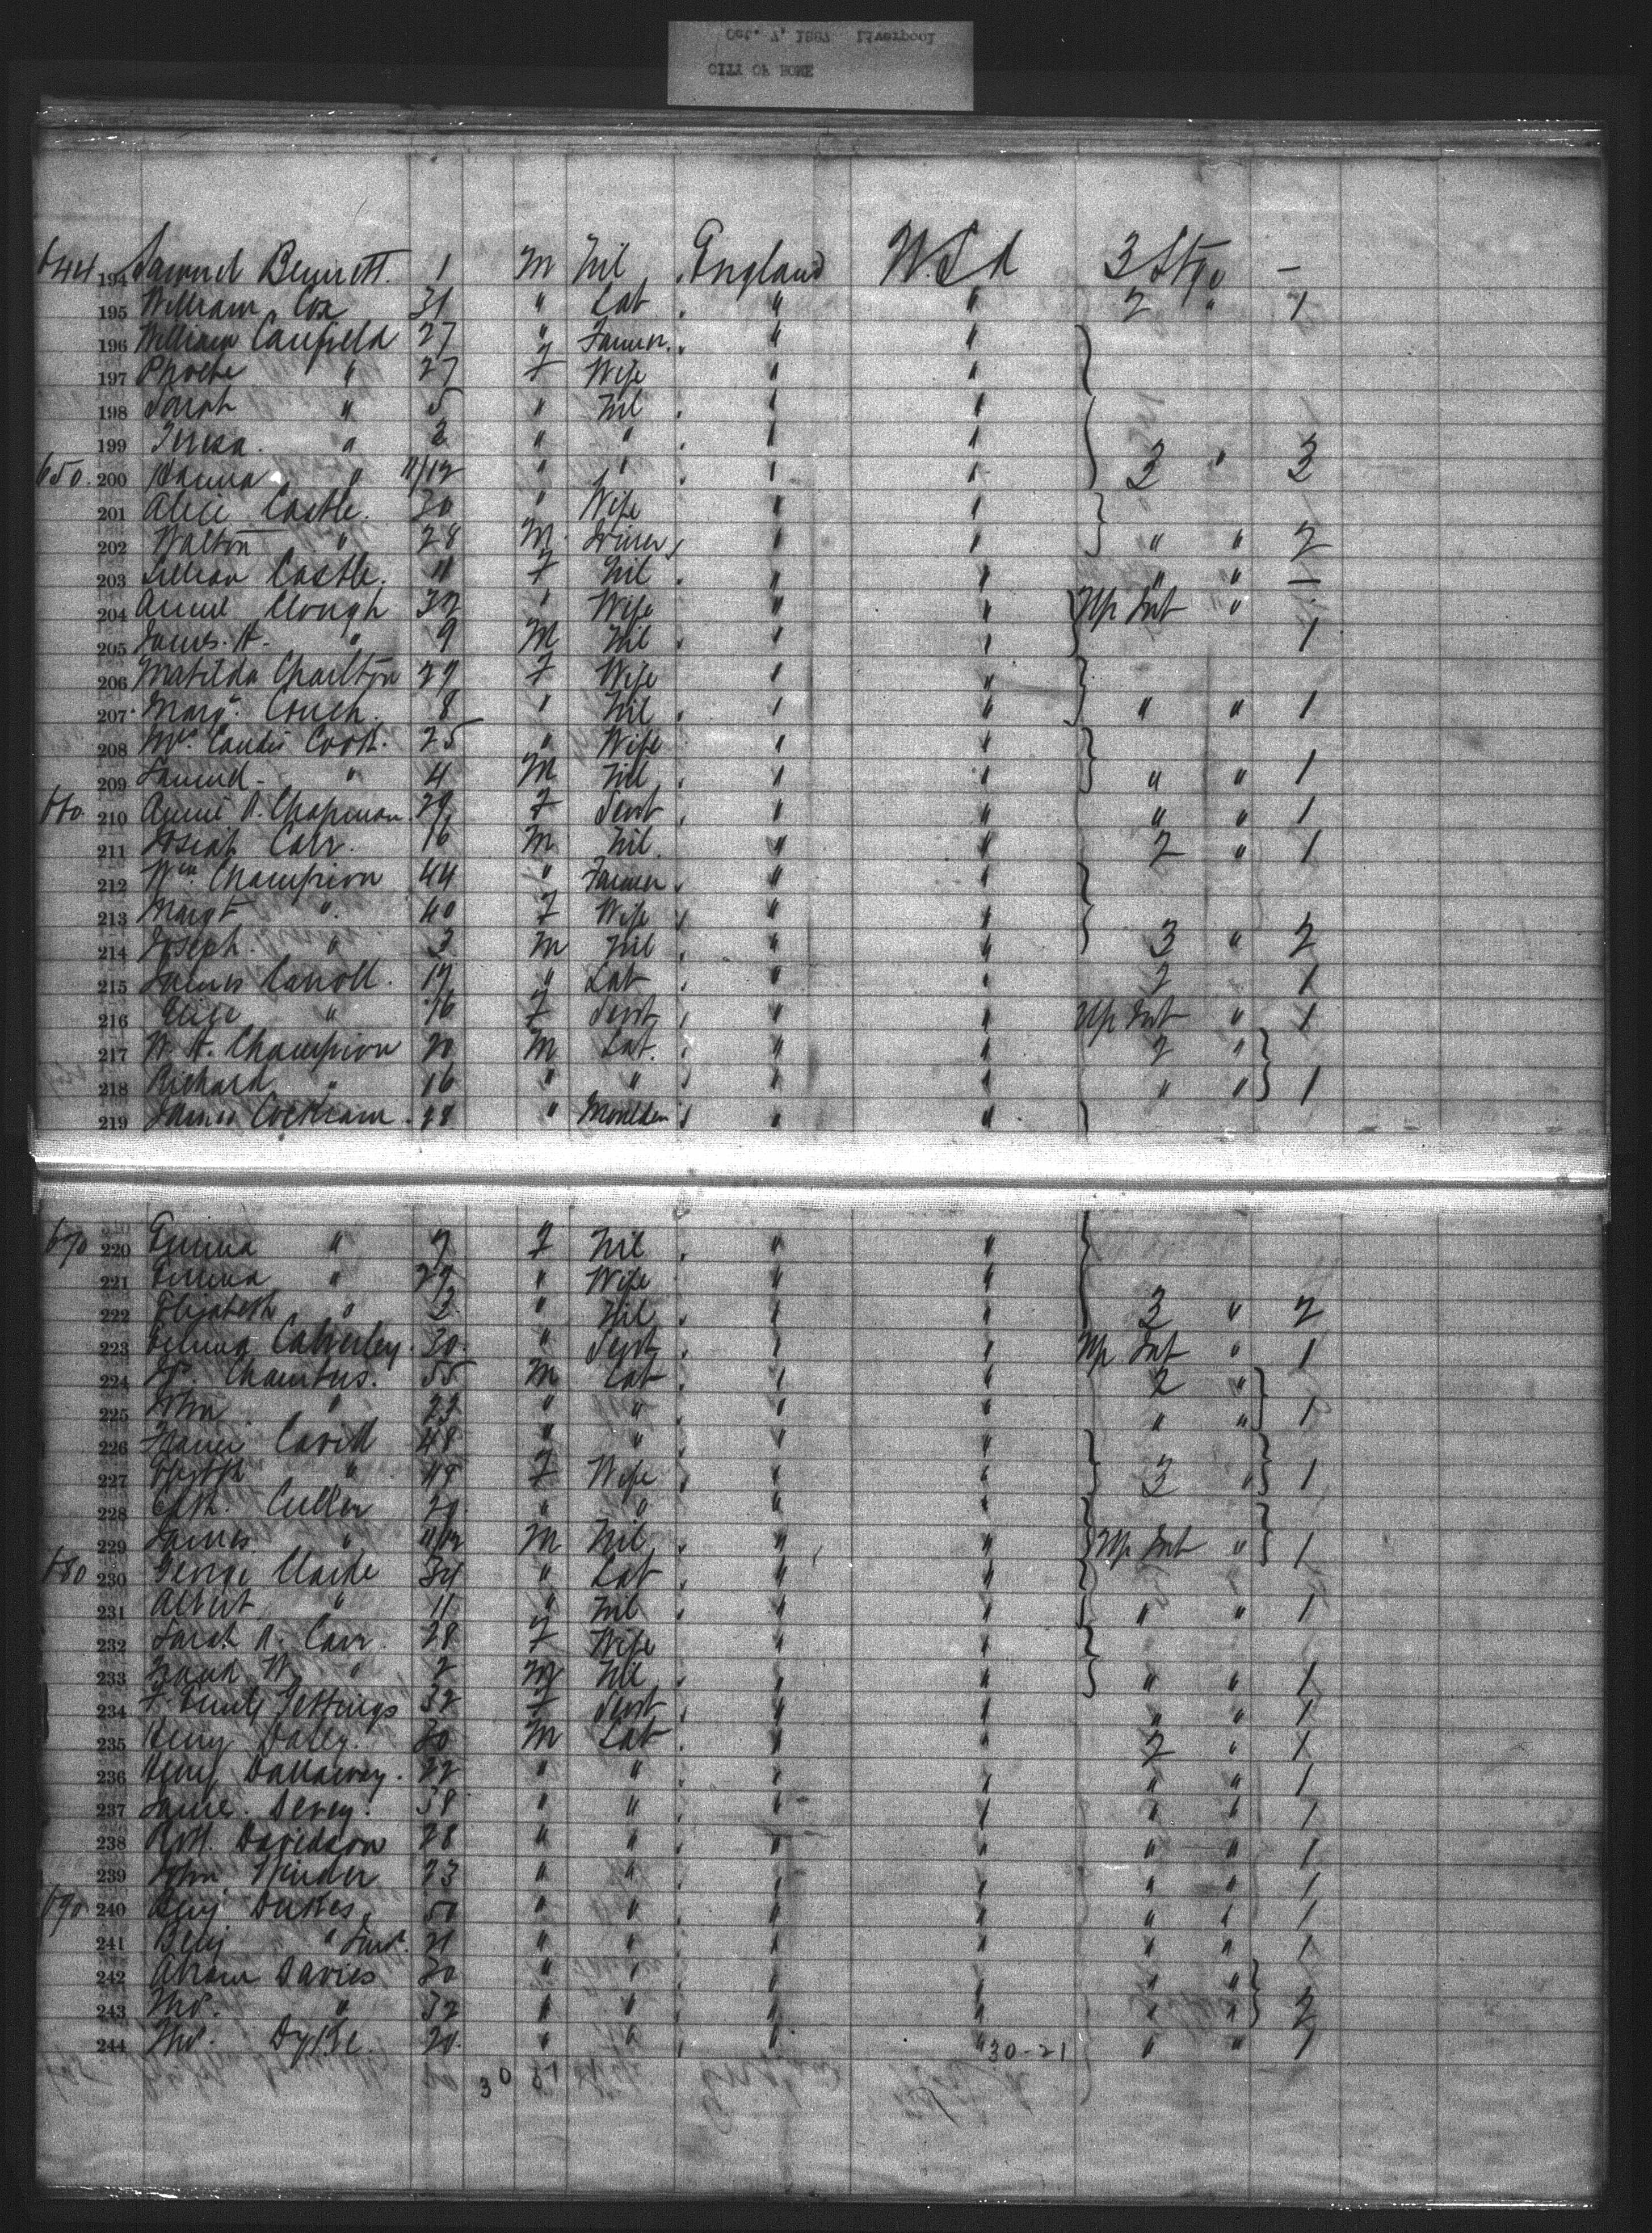 Oct. 7, 1887 Liverpool
CITY OF ROME
644 194 Samuel Bennett. 1 M Nil England W.S.A 3 Stge —
195 William Cox 31 " Lab " " 2 " 1
196 William Canfield 27 " Farmer " "
197 Phoebe " 27 F Wife " "
198 Sarah " 5 " Nil " "
199 Teresa. " 2 " " " "
650. 200 Hanna " 11/12 " " " " 3 " 3
201 Alice Castle. 30 " Wife " "
202 Walton " 28 M. " " " " 2
203 Lillian Castle. 11 F Nil " " " " —
204 Annie Clough 32 " Wife " " Up Int "
205 James. A. " 9 M Nil " " 1
206 Matilda Charlton 29 F Wife " "
207 Margt. Couch. 8 " Nil " " " " 1
208 Mrs. Cook. 25 " Wife " "
209 Samuel. " 4 M Nil " " " " 1
660 210 Annie A. Chapman. 29 F Servt " " " " 1
211 Josiah Carr. 16 M Nil " " 2 " 1
212 Wm Champion 44 " Farmer " "
213 Margt " 40 F Wife " "
214 Joseph. " 3 M Nil " " 3 " 2
215 James Carroll. 19 " Lab " " 2 1
216 Elise " 16 F Servt " " Up Int " 1
217 W. H. Champion 20 M Lab. " " 2 "
218 Richard " 16 " " " " " " 1
219 James Cockram. 28 " Moulder " "
670 220 Emma " 7 F Nil " "
221 Emma " 29 " Wife " "
222 Elizabeth " 3 " Nil " " 3 " 2
223 Emma Calverley. 30. " Servt " " Up Int " 1
224 Chambers. 55 M Lab " " 2 "
225 John " 23 " " " " " " 1
226 48 " " " "
227 " 48 F Wife " " 3 " 1
228 Cullen 20. " " " "
229 James " 11/12 M Nil " " Up Int " 1
680 230 George Clarke 34 " Lab " "
231 Albert " 11 " Nil " " " " 1
232 Sarah A. Carr. 28 F Wife " "
233 Frank W. " 2 M Nil " " " " 1
234 Jettings 32 F Servt " " " " 1
235 Henry Daley. 30 M Lab " " 2 " 1
236 Henry Dallaway. 22 " " " " " " 1
237 38 " " " " " " 1
238 Robt. Davidson 28 " " " " " " 1
239 John Winder 23 " " " " " " 1
690 240 Benj Dukes. 50 " " " " " " 1
241 Benj " Junr. 21 " " " " " " 1
242 Abram Davies 30 " " " " " "
243 Thos. " 32 " " " " " " 2
244 Thos. Dyke. 20. " " " " 30-21 " " 1
30